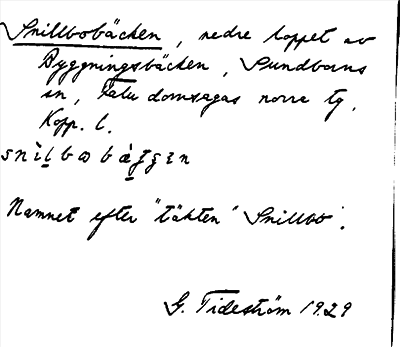 Snillbobäcken, nedre loppet av
Byggningsbäcken, Sundborns
sn, Falu domsagas norre tg,
Kopp. l.
Namnet efter "täkten" Snillbo.
G. Tideström 1929